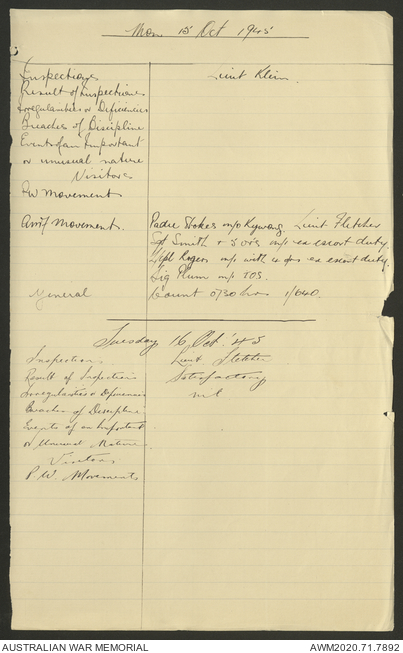 Mon 15 Oct 1945
Inspections Lieut Klein.
Result of Inspections
Irregularities or Deficiencies
Breaches of Discipline
Events of an Important
or unusual nature
Visitors
PW Movement
Amf Movement. Padre Stokes m/o Lieut Fletcher
Sgt Smith + 5 ors m/i ex escort duty.
Rogers m/i with 4 ors ex escort duty.
Sig Plum m/i TOS.
General Count 0730 hrs 1/640.
Tuesday 16 Oct '45
Inspections Lieut Fletcher
Result of Inspections Satisfactory
Irregularities or Deficiencies nil
Breaches of Discipline
Events of an Important
or Unusual Nature
Visitors
P.W. Movements
AUSTRALIAN WAR MEMORIAL AWM2020.71.7892